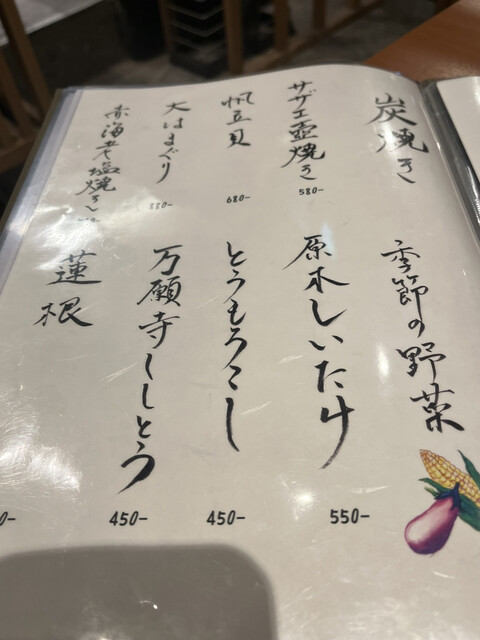 炭焼き
サザエ壺焼き
580-
帆立貝
680-
大はまぐり
880-
赤海老塩焼き
季節の野菜
原木しいたけ
550-
とうもろこし
450-
万願寺ししとう
450-
蓮根
0-